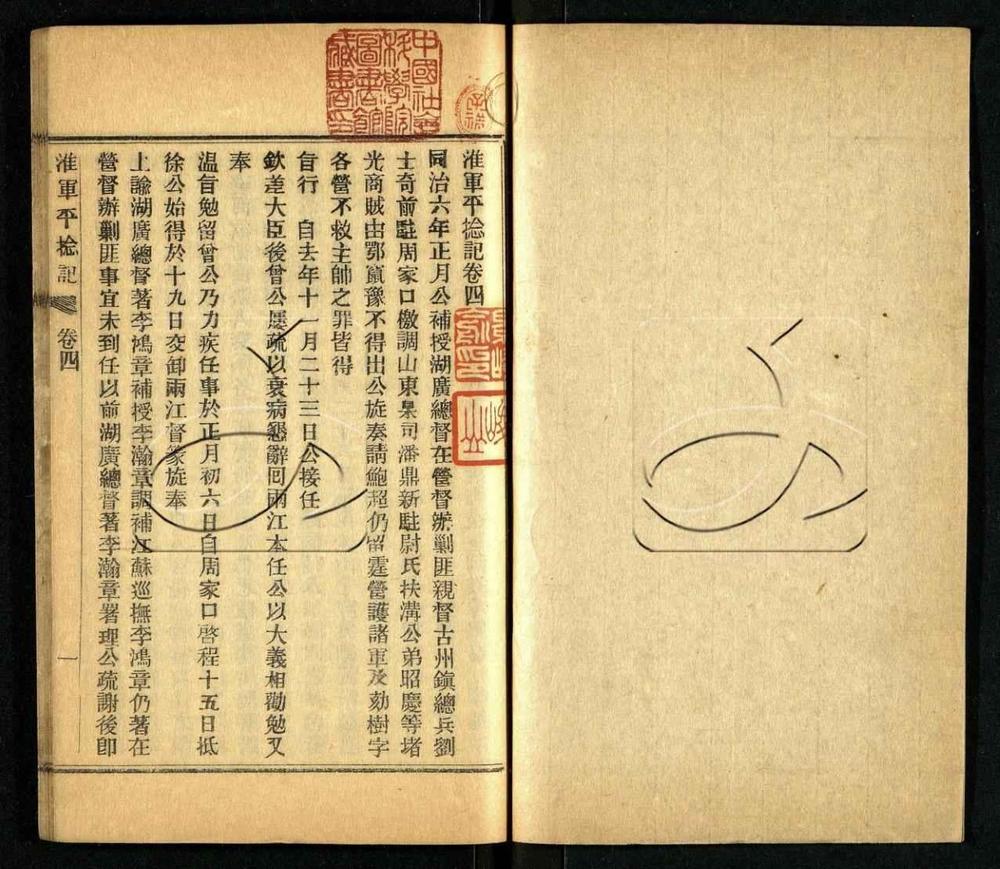 淮軍平捻記卷四
同治六年正月公補授湖廣總督在營督辦剿匪親督古州鎮總兵劉
士奇前駐周家口檄調山東臬司潘鼎新駐尉氏扶溝公弟昭慶等堵
光商賊由鄂竄豫不得出公旋奏請鮑超仍留霆營護諸軍及劾樹字
各營不救主帥之罪皆得
旨行　自去年十一月二十三日公接任
欽差大臣後曾公屢疏以衰病懇辭回兩江本任公以大義相勸勉又
奉
溫旨勉留曾公乃力疾任事於正月初六日自周家口啓程十五日抵
徐公始得於十九日交卸兩江督篆旋奉
上諭湖廣總督著李鴻章補授李瀚章調補江蘇巡撫李鴻章仍著在
營督辦剿匪事宜未到任以前湖廣總督著李瀚章署理公疏謝後卽
淮軍平捻記　卷四　一
中國社會科學院圖書館藏書印